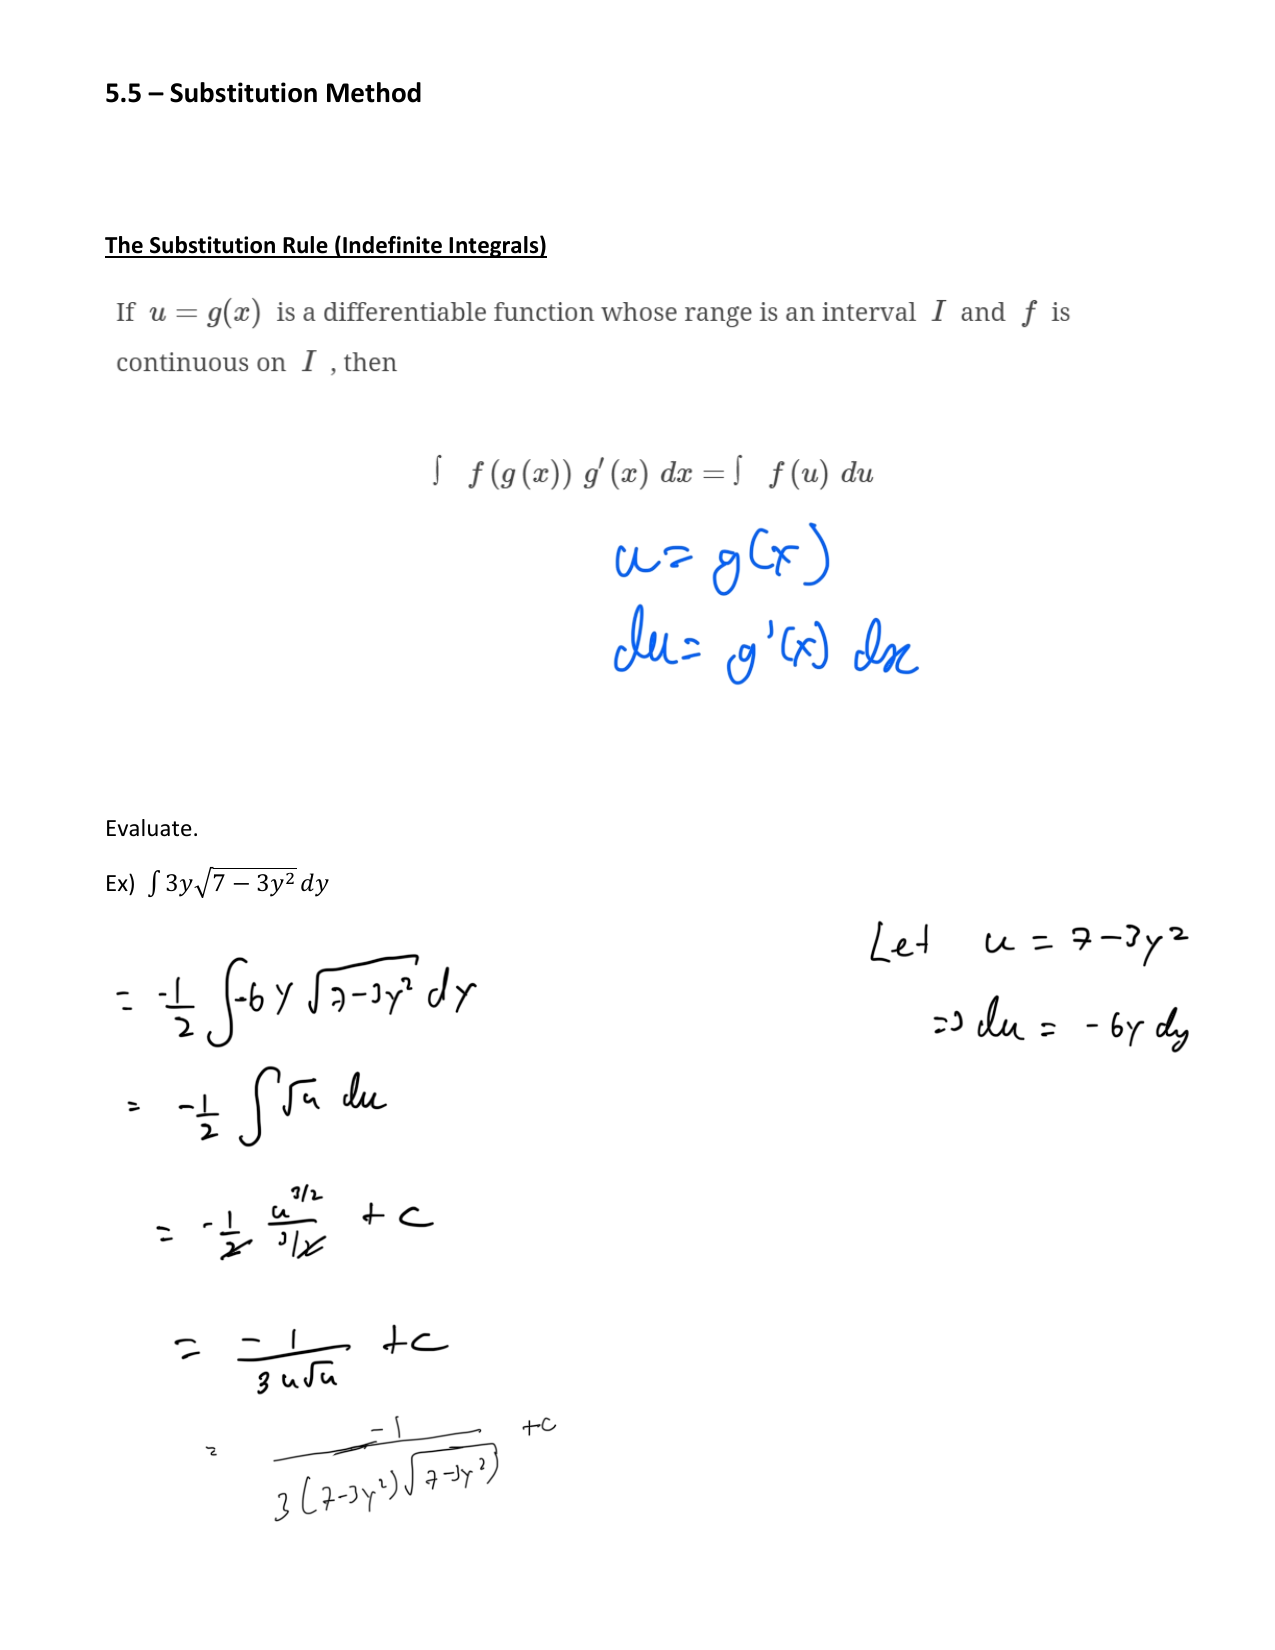 5.5 – Substitution Method
The Substitution Rule (Indefinite Integrals)
If u = g(x) is a differentiable function whose range is an interval I and f is
continuous on I , then
∫ f(g(x)) g′(x) dx = ∫ f(u) du
u = g(x)
du = g'(x) dx
Evaluate.
Ex) ∫ 3y√(7 − 3y²) dy
Let u = 7-3y²
=> du = -6y dy
= -1/2 ∫ -6y √(7-3y²) dy
= -1/2 ∫ √u du
= -1/2 u^(3/2)/(3/2) + c
= -1/(3u√u) + c
= -1/(3(7-3y²)√(7-3y²)) + c